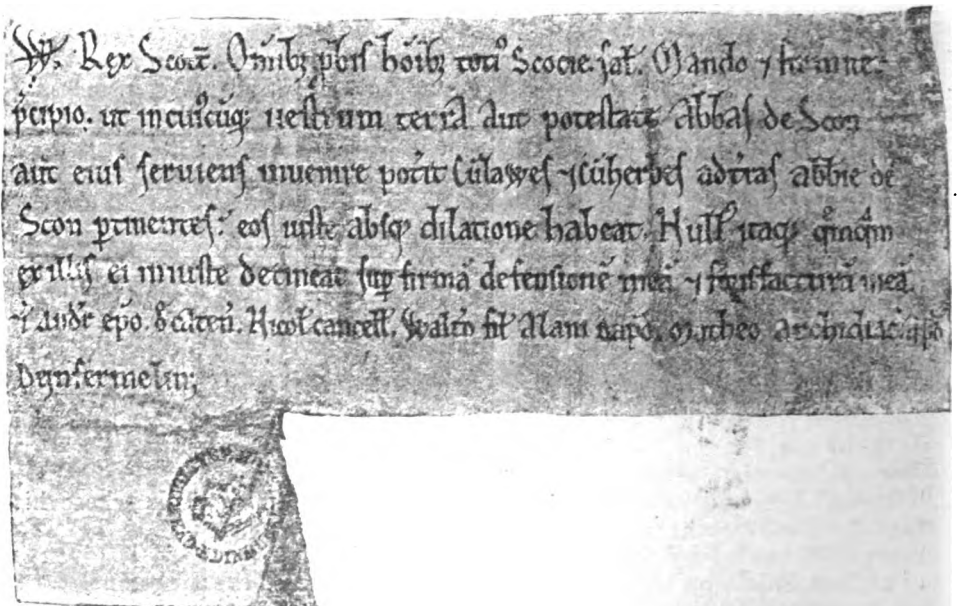 W. Rex Scott̅. Om̅ib; p̅bis ho̅ib; toti᷒ Scocie. sal̅. Mando ⁊ firmit̅
p̅cipio. ut in cui᷒cuq; uestrum terra̅ aut potestate̅ Abbas de Scon
aut eius seruiens inuenire pot̅it Cu̅lawes ⁊ Cu̅herbes ad t̅ras abb̅ie de
Scon p̱tinentes.' eos iuste absq; dilatione habeat. Null᷒ itaq;
ex illis ei iniuste detineat sup̱ firma̅ defensione̅ mea̅ ⁊ forisfactura̅ mea̅.
T̅. Andr̅ ep̅o. de Caten̅. Nicol̅ cancell̅. Walt̅o fil̅ Alani dap̅. Matheo Archidiac̅. ap̅
Dunfermelin;